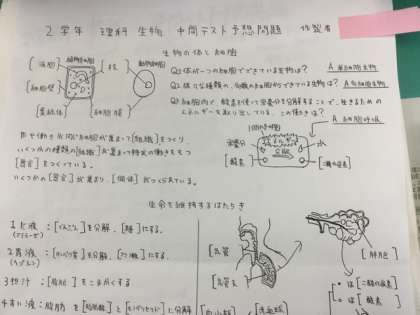 2学年 理科 生物 中間テスト予想問題 作製者
生物の体と細胞
[液胞] 植物細胞 [核] 動物細胞
[細胞壁]
[葉緑体] [細胞膜]
Q1 体が一つの細胞でできている生物は? A 単細胞生物
Q2 体が 種類の、 の細胞からできている生物は? A 多細胞生物
Q3 細胞内で 酸素を使って栄養分を分解することで、生きるための
エネルギーを取り出している。この働きは? A 細胞呼吸
同じ働き の細胞が集まって[組織]をつくり、
いくつかの種類の[組織]が集まって特定の働きをもつ
[器官]をつくっている。
いくつかの[器官]が集まり、[個体]がつくられている。
1つの細胞
栄養分 エネルギー 水
[酸素] 分解 [二酸化炭素]
生命を維持するはたらき
1 だ液:[でんぷん]を分解、[糖]にする。
(アミラーゼ)
2 胃液:[タンパク質]を分解、[アミノ酸]にする。
(ペプシン)
3 胆汁:[脂肪]をこまかくする。
4 すい液:脂肪を[脂肪酸]と[モノグリセリド]に分解
[気管]
[気管支]
[肺胞]
は[二酸化炭素]
は[酸素]